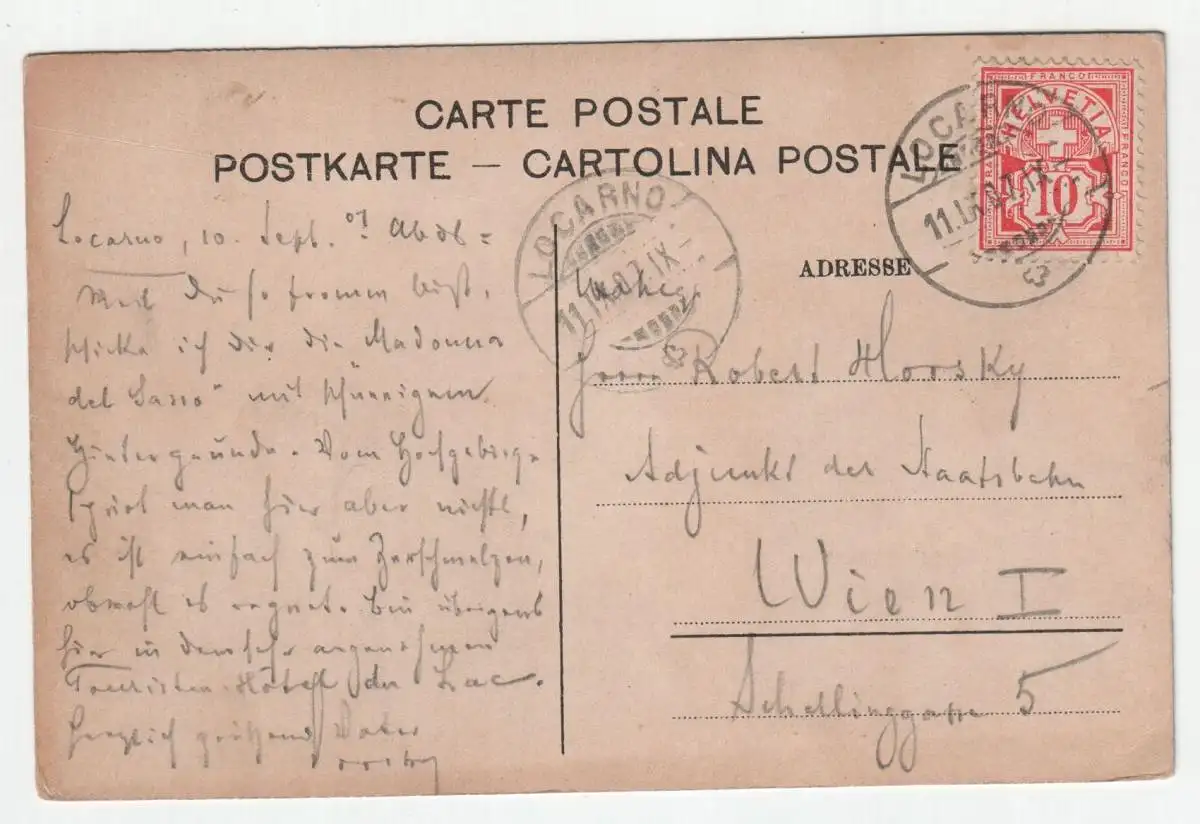 CARTE POSTALE
POSTKARTE — CARTOLINA POSTALE
FRANCO
FRANCO
FRANCO
HELVETIA
10
LOCARNO
11.IX.07.IX
LOCARNO
11.IX.07.IX
Locarno, 10. Sept. 07. Abds =
Weil du so fromm bist,
schicke ich dir die Madonna
del Sasso" mit schneeigem
Hintergrunde. Vom Hochgebirge
spürt man hier aber nichts,
es ist einfach zum Zerschmelzen,
obwohl es regnet. Bin übrigens
hier in dem sehr angenehmen
Touristen-Hôtel du Lac.
Herzlich grüßend Vater
ADRESSE
Herrn Robert Horsky
Adjunkt der Staatsbahn
Wien I
Schellinggasse 5